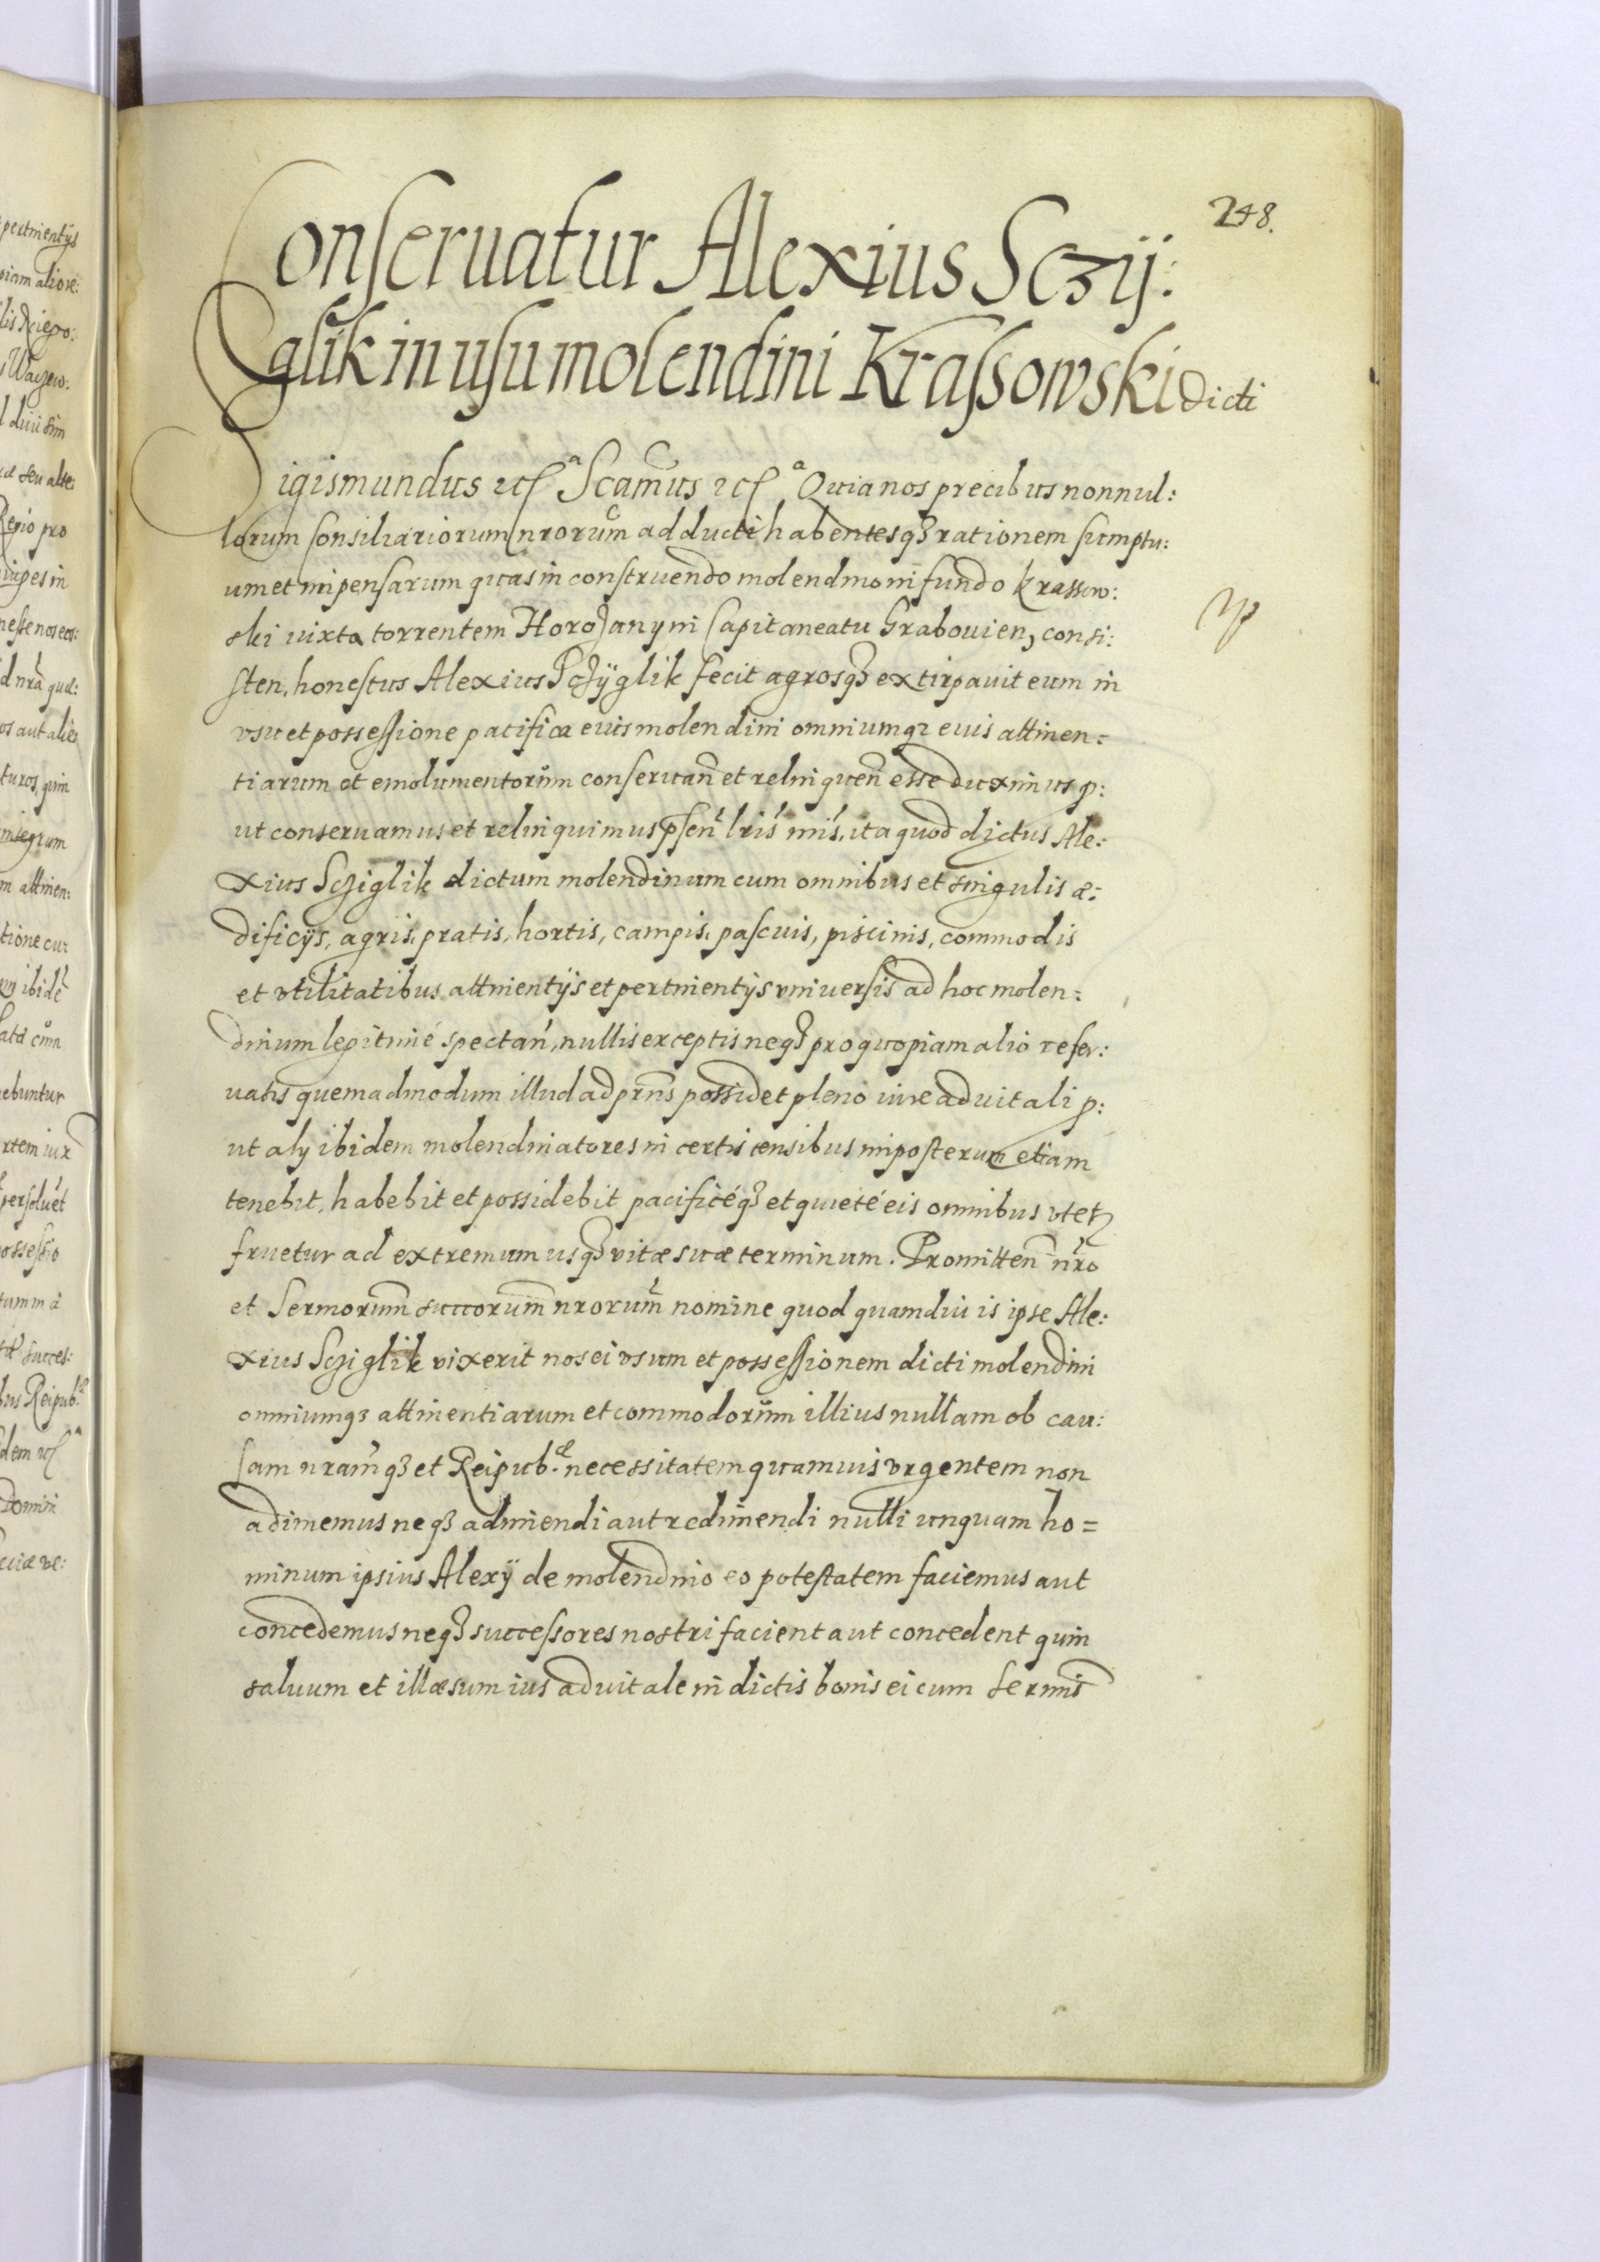 248.
Conseruatur Alexius Sczij:
glik in usu molendini Krassowski dicti
Sigismundus etc. Scamus etc. Quia nos precibus nonnul:
lorum Consiliariorum nrorum adducti habentesq3 rationem sumptu:
um et impensarum quas in construendo molendino in fundo Krassow:
ski iuxta torrentem Horodzany in Capitaneatu Grabouien, consi:
sten, honestus Alexius Sczÿglik fecit agrosq3 extirpauit eum in
vsu et possessione pacifica euis molendini omniumq3 euis attinen:
tiarum et emolumentorum conseruan et relinquen esse duximus p:
ut conseruamus et relinquimus psen lris mis, ita quod dictus Ale:
xius Scziglik dictum molendinum cum omnibus et singulis æ:
dificijs, agris, pratis, hortis, campis, pascuis, piscinis, commodis
et vtilitatibus attinentijs et pertinentijs vniuersis ad hoc molen:
dinum legitimé spectan, nullis exceptis neq3 pro quopiam alio reser:
uatis quemadmodum illud ad prns possidet pleno iure aduitali p:
ut alij ibidem molendinatores in certis censibus imposterum etiam
tenebit, habebit et possidebit pacificéq3 et quieté eis omnibus vtet
fruetur ad extremum usq3 vitæ suæ terminum. Promitten nro
et Sermorum succorum nrorum nomine quod quamdiu is ipse Ale:
xius Scziglik vixerit nos ei vsum et possessionem dicti molendini
omniumq3 attinentiarum et commodorum illius nullam ob cau:
sam nramq3 et Reipub.æ necessitatem quamuis vrgentem non
adimemus neq3 adimendi aut redimendi nulli unquam ho=
minum ipsius Alexÿ de molendino eo potestatem faciemus aut
concedemus neq3 successores nostri facient aut concedent quin
saluum et illæsum ius aduitale in dictis bonis ei cum Sermis